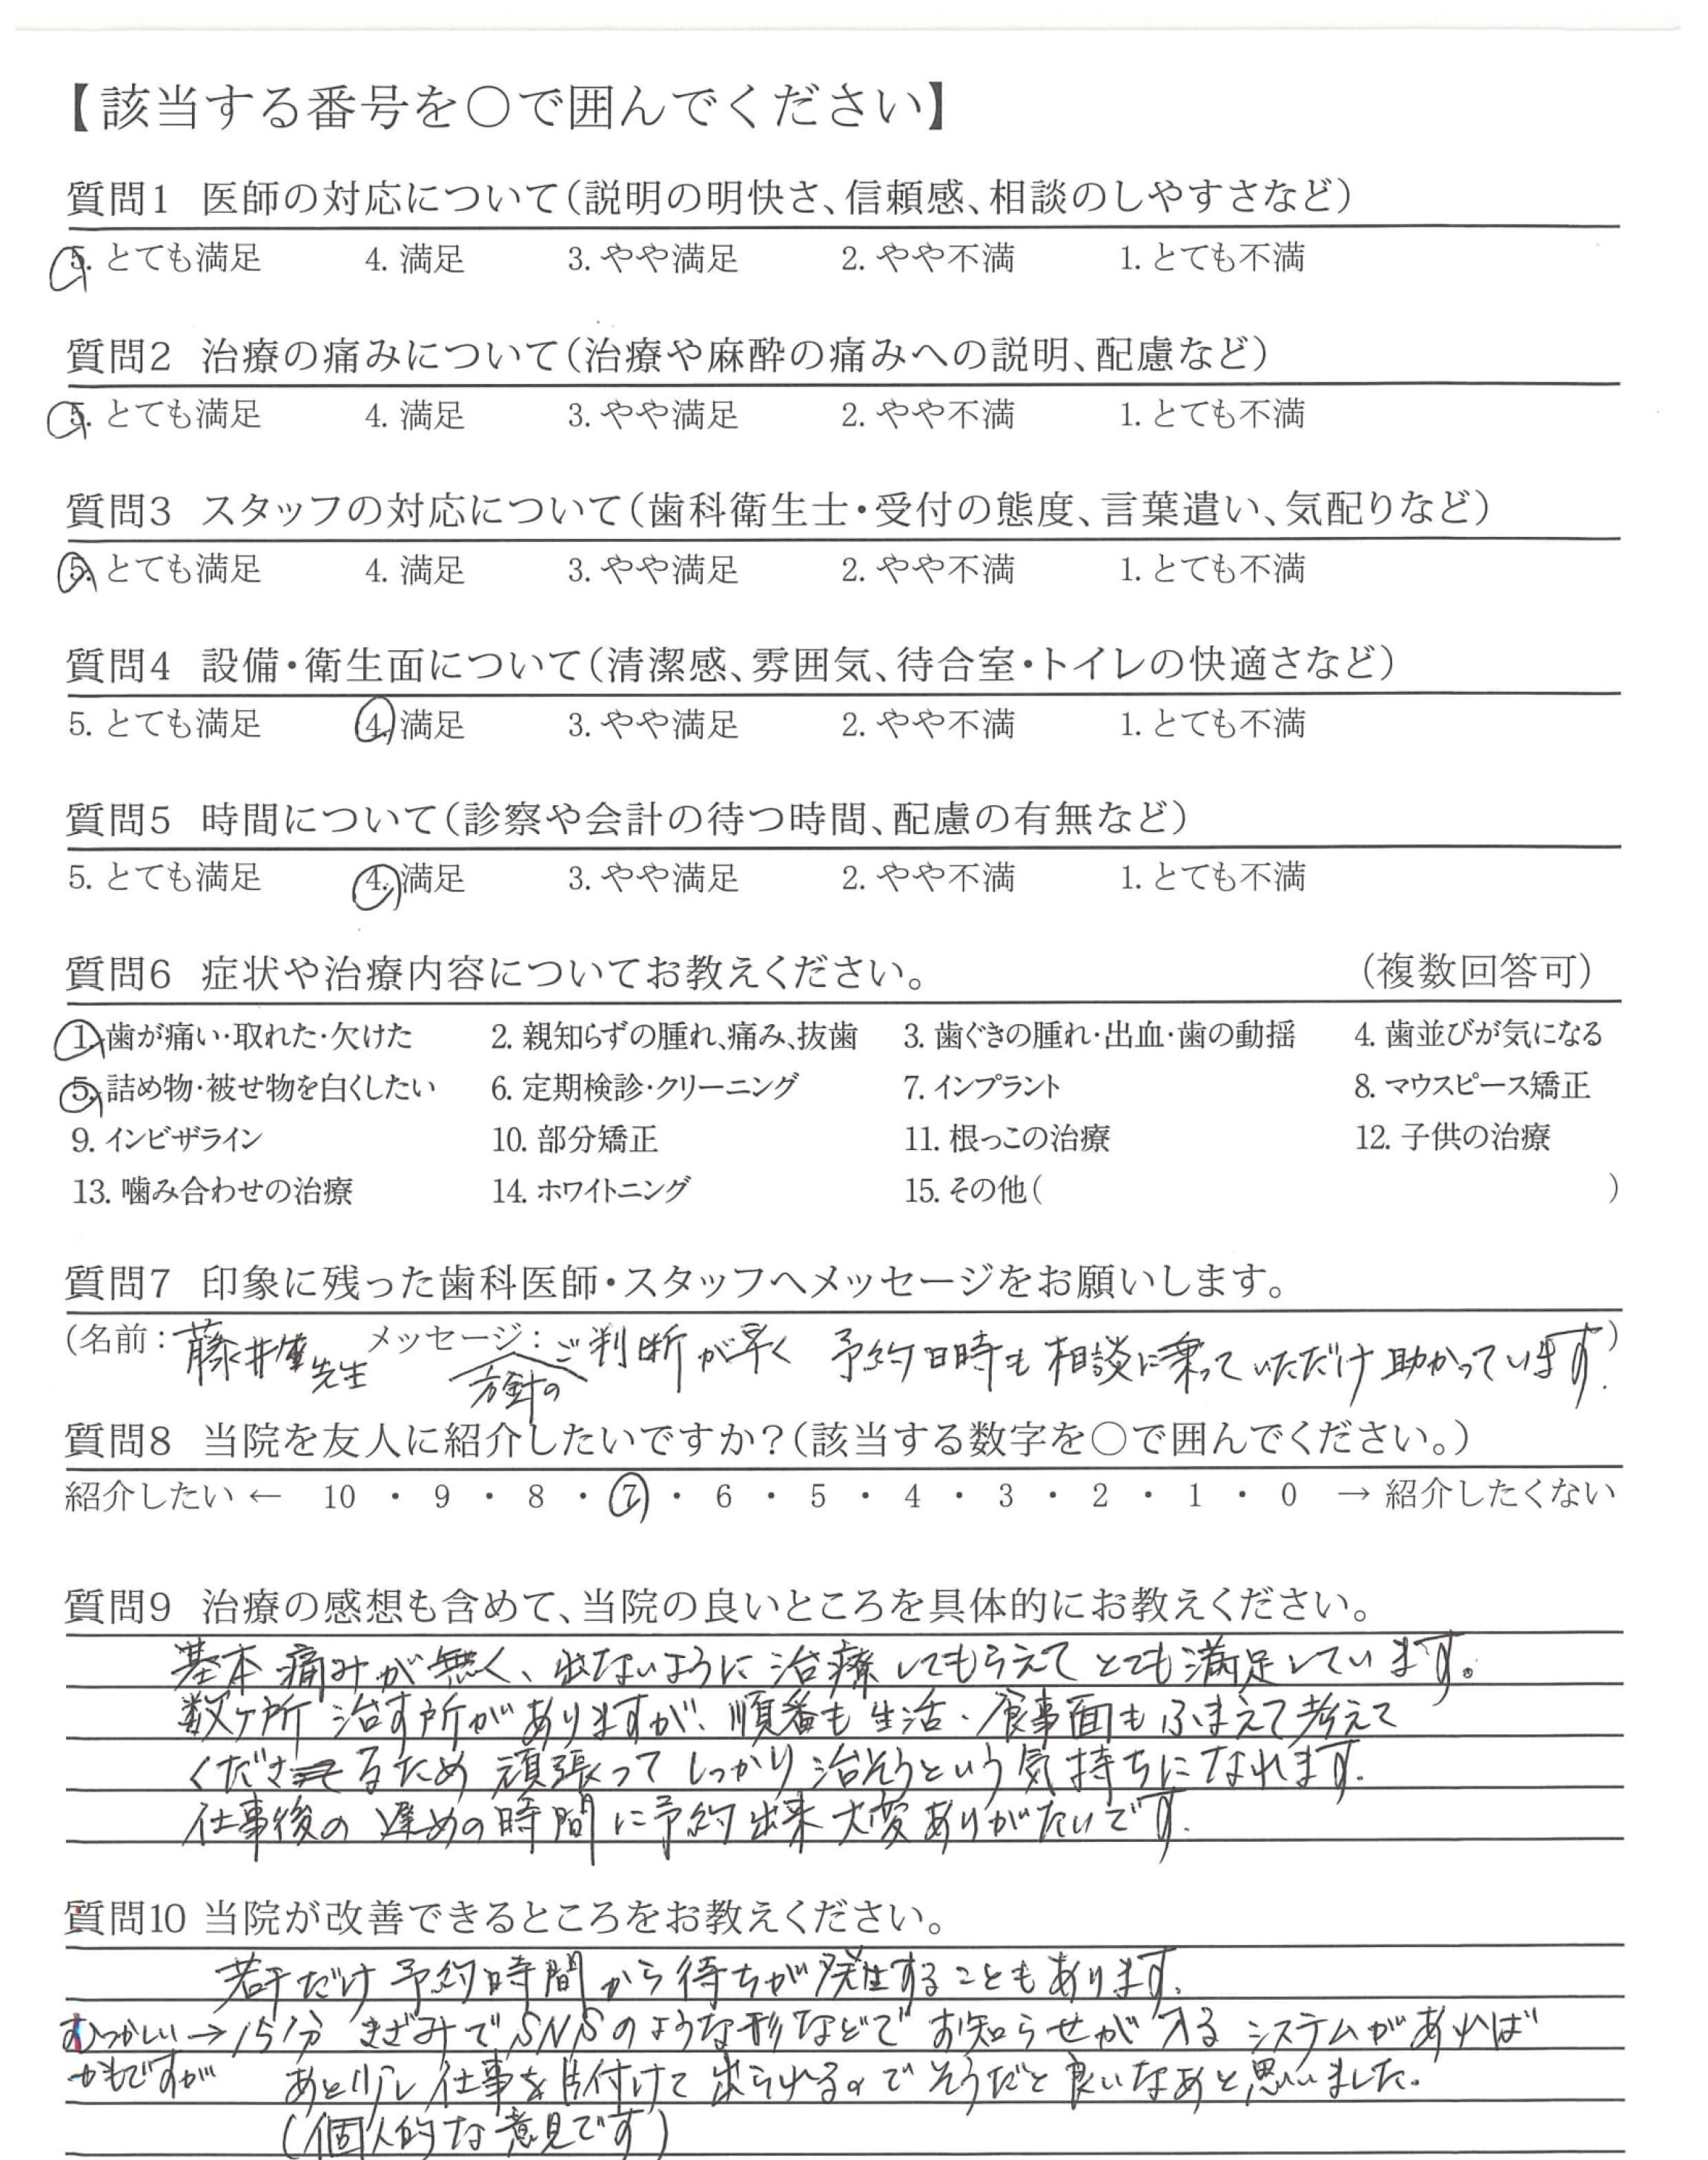 【該当する番号を○で囲んでください】
質問1 医師の対応について(説明の明快さ、信頼感、相談のしやすさなど)
5. とても満足 4. 満足 3. やや満足 2. やや不満 1. とても不満
質問2 治療の痛みについて(治療や麻酔の痛みへの説明、配慮など)
5. とても満足 4. 満足 3. やや満足 2. やや不満 1. とても不満
質問3 スタッフの対応について(歯科衛生士・受付の態度、言葉遣い、気配りなど)
5. とても満足 4. 満足 3. やや満足 2. やや不満 1. とても不満
質問4 設備・衛生面について(清潔感、雰囲気、待合室・トイレの快適さなど)
5. とても満足 4. 満足 3. やや満足 2. やや不満 1. とても不満
質問5 時間について(診察や会計の待つ時間、配慮の有無など)
5. とても満足 4. 満足 3. やや満足 2. やや不満 1. とても不満
質問6 症状や治療内容についてお教えください。 (複数回答可)
1. 歯が痛い・取れた・欠けた 2. 親知らずの腫れ、痛み、抜歯 3. 歯ぐきの腫れ・出血・歯の動揺 4. 歯並びが気になる
5. 詰め物・被せ物を白くしたい 6. 定期検診・クリーニング 7. インプラント 8. マウスピース矯正
9. インビザライン 10. 部分矯正 11. 根っこの治療 12. 子供の治療
13. 噛み合わせの治療 14. ホワイトニング 15. その他( )
質問7 印象に残った歯科医師・スタッフへメッセージをお願いします。
(名前: 藤井 先生 メッセージ: 方針のご判断が早く 予約日時も相談に乗っていただけ助かっています.)
質問8 当院を友人に紹介したいですか?(該当する数字を○で囲んでください。)
紹介したい ← 10 ・ 9 ・ 8 ・ 7 ・ 6 ・ 5 ・ 4 ・ 3 ・ 2 ・ 1 ・ 0 → 紹介したくない
質問9 治療の感想も含めて、当院の良いところを具体的にお教えください。
基本痛みが無く、出ないように治療してもらえてとても満足しています。
数ヶ所治す所がありますが、順番も生活・食事面もふまえて考えて
くださるため頑張ってしっかり治そうという気持ちになれます.
仕事後の遅めの時間に予約出来大変ありがたいです.
質問10 当院が改善できるところをお教えください。
若干だけ予約時間から待ちが発生することもあります.
むつかしい→15分きざみでSNSのような形などでお知らせが入るシステムがあれば
かもですが あと少し仕事を片付けて出られるのでそうだと良いなあと思いました.
(個人的な意見です)